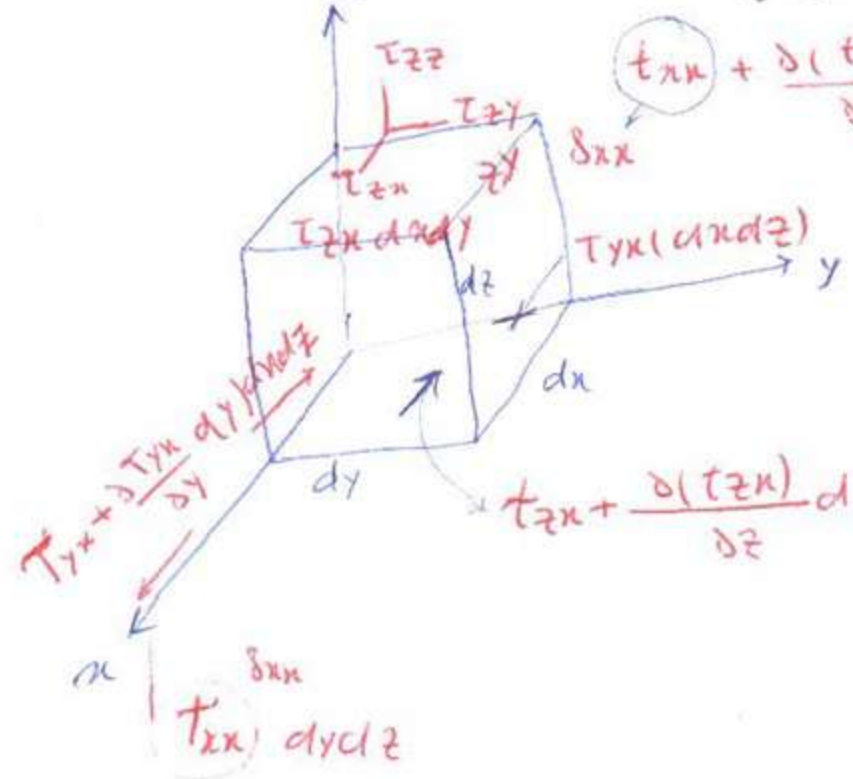 τzz
τzy
τzx
txx + ∂(t
∂
δxx
zy
τzx dxdy
dz
τyx(dxdz)
y
dx
dy
τyx + ∂τyx/∂y dy)dxdz
tzx + ∂(tzx)/∂z d
x
δxx
τxx dydz